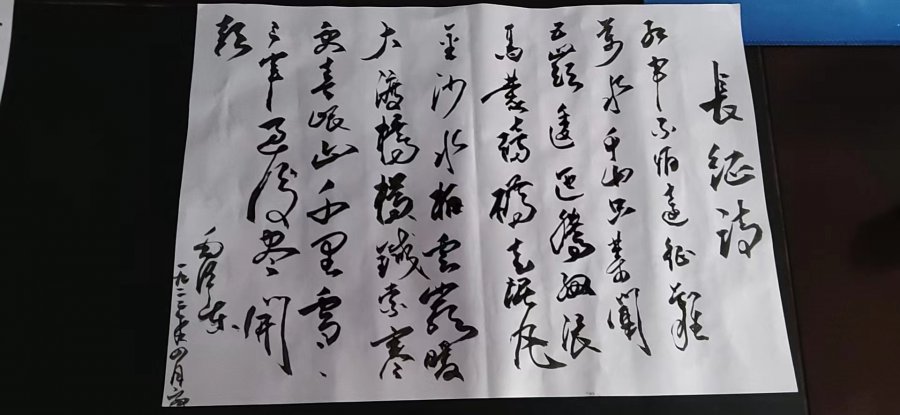 長征詩
紅軍不怕遠征難
萬水千山只等閒
五嶺逶迤騰細浪
烏蒙磅礴走泥丸
金沙水拍雲崖暖
大渡橋橫鐵索寒
更喜岷山千里雪
三軍過後盡開
顏
毛澤東
一九年四月